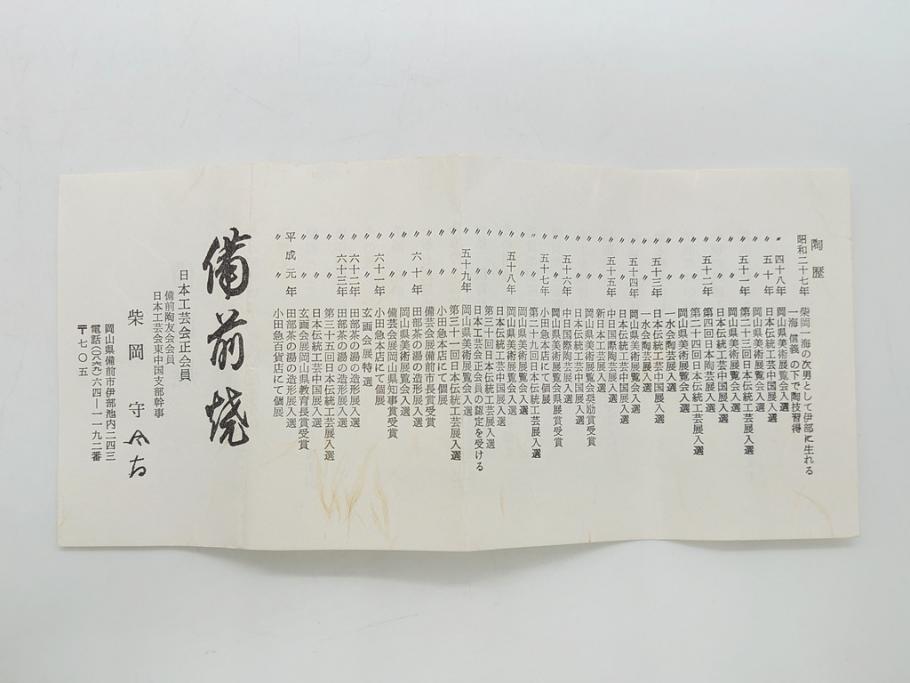 陶歴
昭和二十七年 柴岡一海の次男として伊部に生れる
一海 信義 の下で陶技習得
〃 四十八年 岡山県美術展覧会入選
〃 五十年 日本伝統工芸中国展入選
〃 〃 岡山県美術展覧会入選
〃 五十一年 第二十三回日本伝統工芸展入選
〃 〃 岡山県美術展覧会入選
〃 〃 日本伝統工芸中国展入選
〃 五十二年 第四回日本陶芸展入選
〃 〃 第二十四回日本伝統工芸展入選
〃 〃 岡山県美術展覧会入選
〃 〃 一水会陶芸展入選
〃 五十三年 日本伝統工芸中国展入選
〃 〃 一水会陶芸展入選
〃 五十四年 岡山県美術展覧会入選
〃 〃 日本伝統工芸中国展入選
〃 五十五年 中日国際陶芸展入選
〃 〃 新日本工芸展入選
〃 〃 岡山県美術展覧会奨励賞受賞
〃 〃 日本伝統工芸中国展入選
〃 五十六年 中日国際陶芸展入選
〃 〃 岡山県美術展覧会県展賞受賞
〃 五十七年 小田急本店にて個展
〃 〃 第二十九回日本伝統工芸展入選
〃 〃 岡山県美術展覧会入選
〃 五十八年 岡山県美術展覧会入選
〃 〃 日本伝統工芸中国展入選
〃 〃 第三十回日本伝統工芸展入選
〃 〃 日本工芸会正会員の認定を受ける
〃 五十九年 岡山県美術展覧会入選
〃 〃 第三十一回日本伝統工芸展入選
〃 〃 小田急本店にて個展
〃 〃 備芸会展備前市長賞受賞
〃 六十年 田部茶の湯の造形展入選
〃 〃 岡山県美術展覧会入選
〃 〃 備芸会展岡山県知事賞受賞
〃 六十一年 小田急本店にて個展
〃 〃 玄画会展特選
〃 六十二年 田部茶の湯の造形展入選
〃 六十三年 田部茶の湯の造形展入選
〃 〃 第三十五回日本伝統工芸展入選
〃 〃 日本伝統工芸中国展入選
〃 〃 玄画会展岡山県教育長賞受賞
平成元年 田部茶の湯の造形展入選
〃 〃 小田急百貨店にて個展
備前焼
日本工芸会正会員
備前陶友会会員
日本工芸会東中国支部幹事
柴岡 守
岡山県備前市伊部池内二四三
電話(〇八六九)六四―一一九二番
〒七〇五